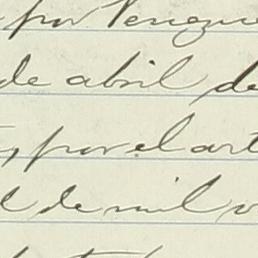 por Venezue
de abril de
, por el art
l de mil v